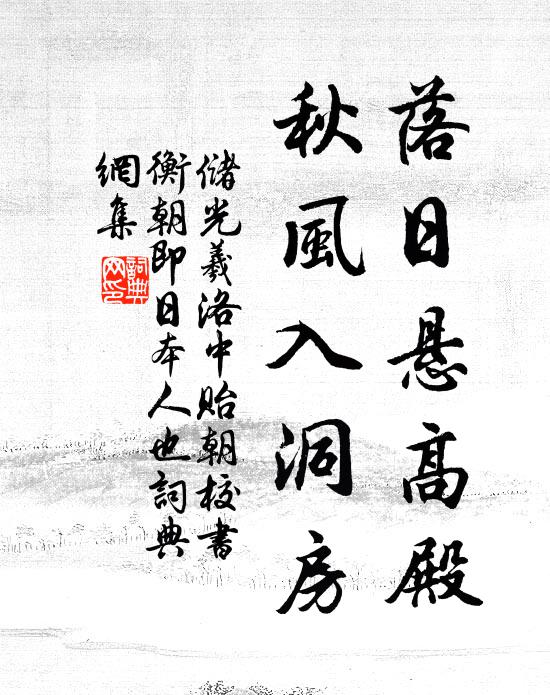 落日悬高殿
秋風入洞房
儲光羲洛中貽朝校書
衡朝即日本人也詞典
網集
詞典網印